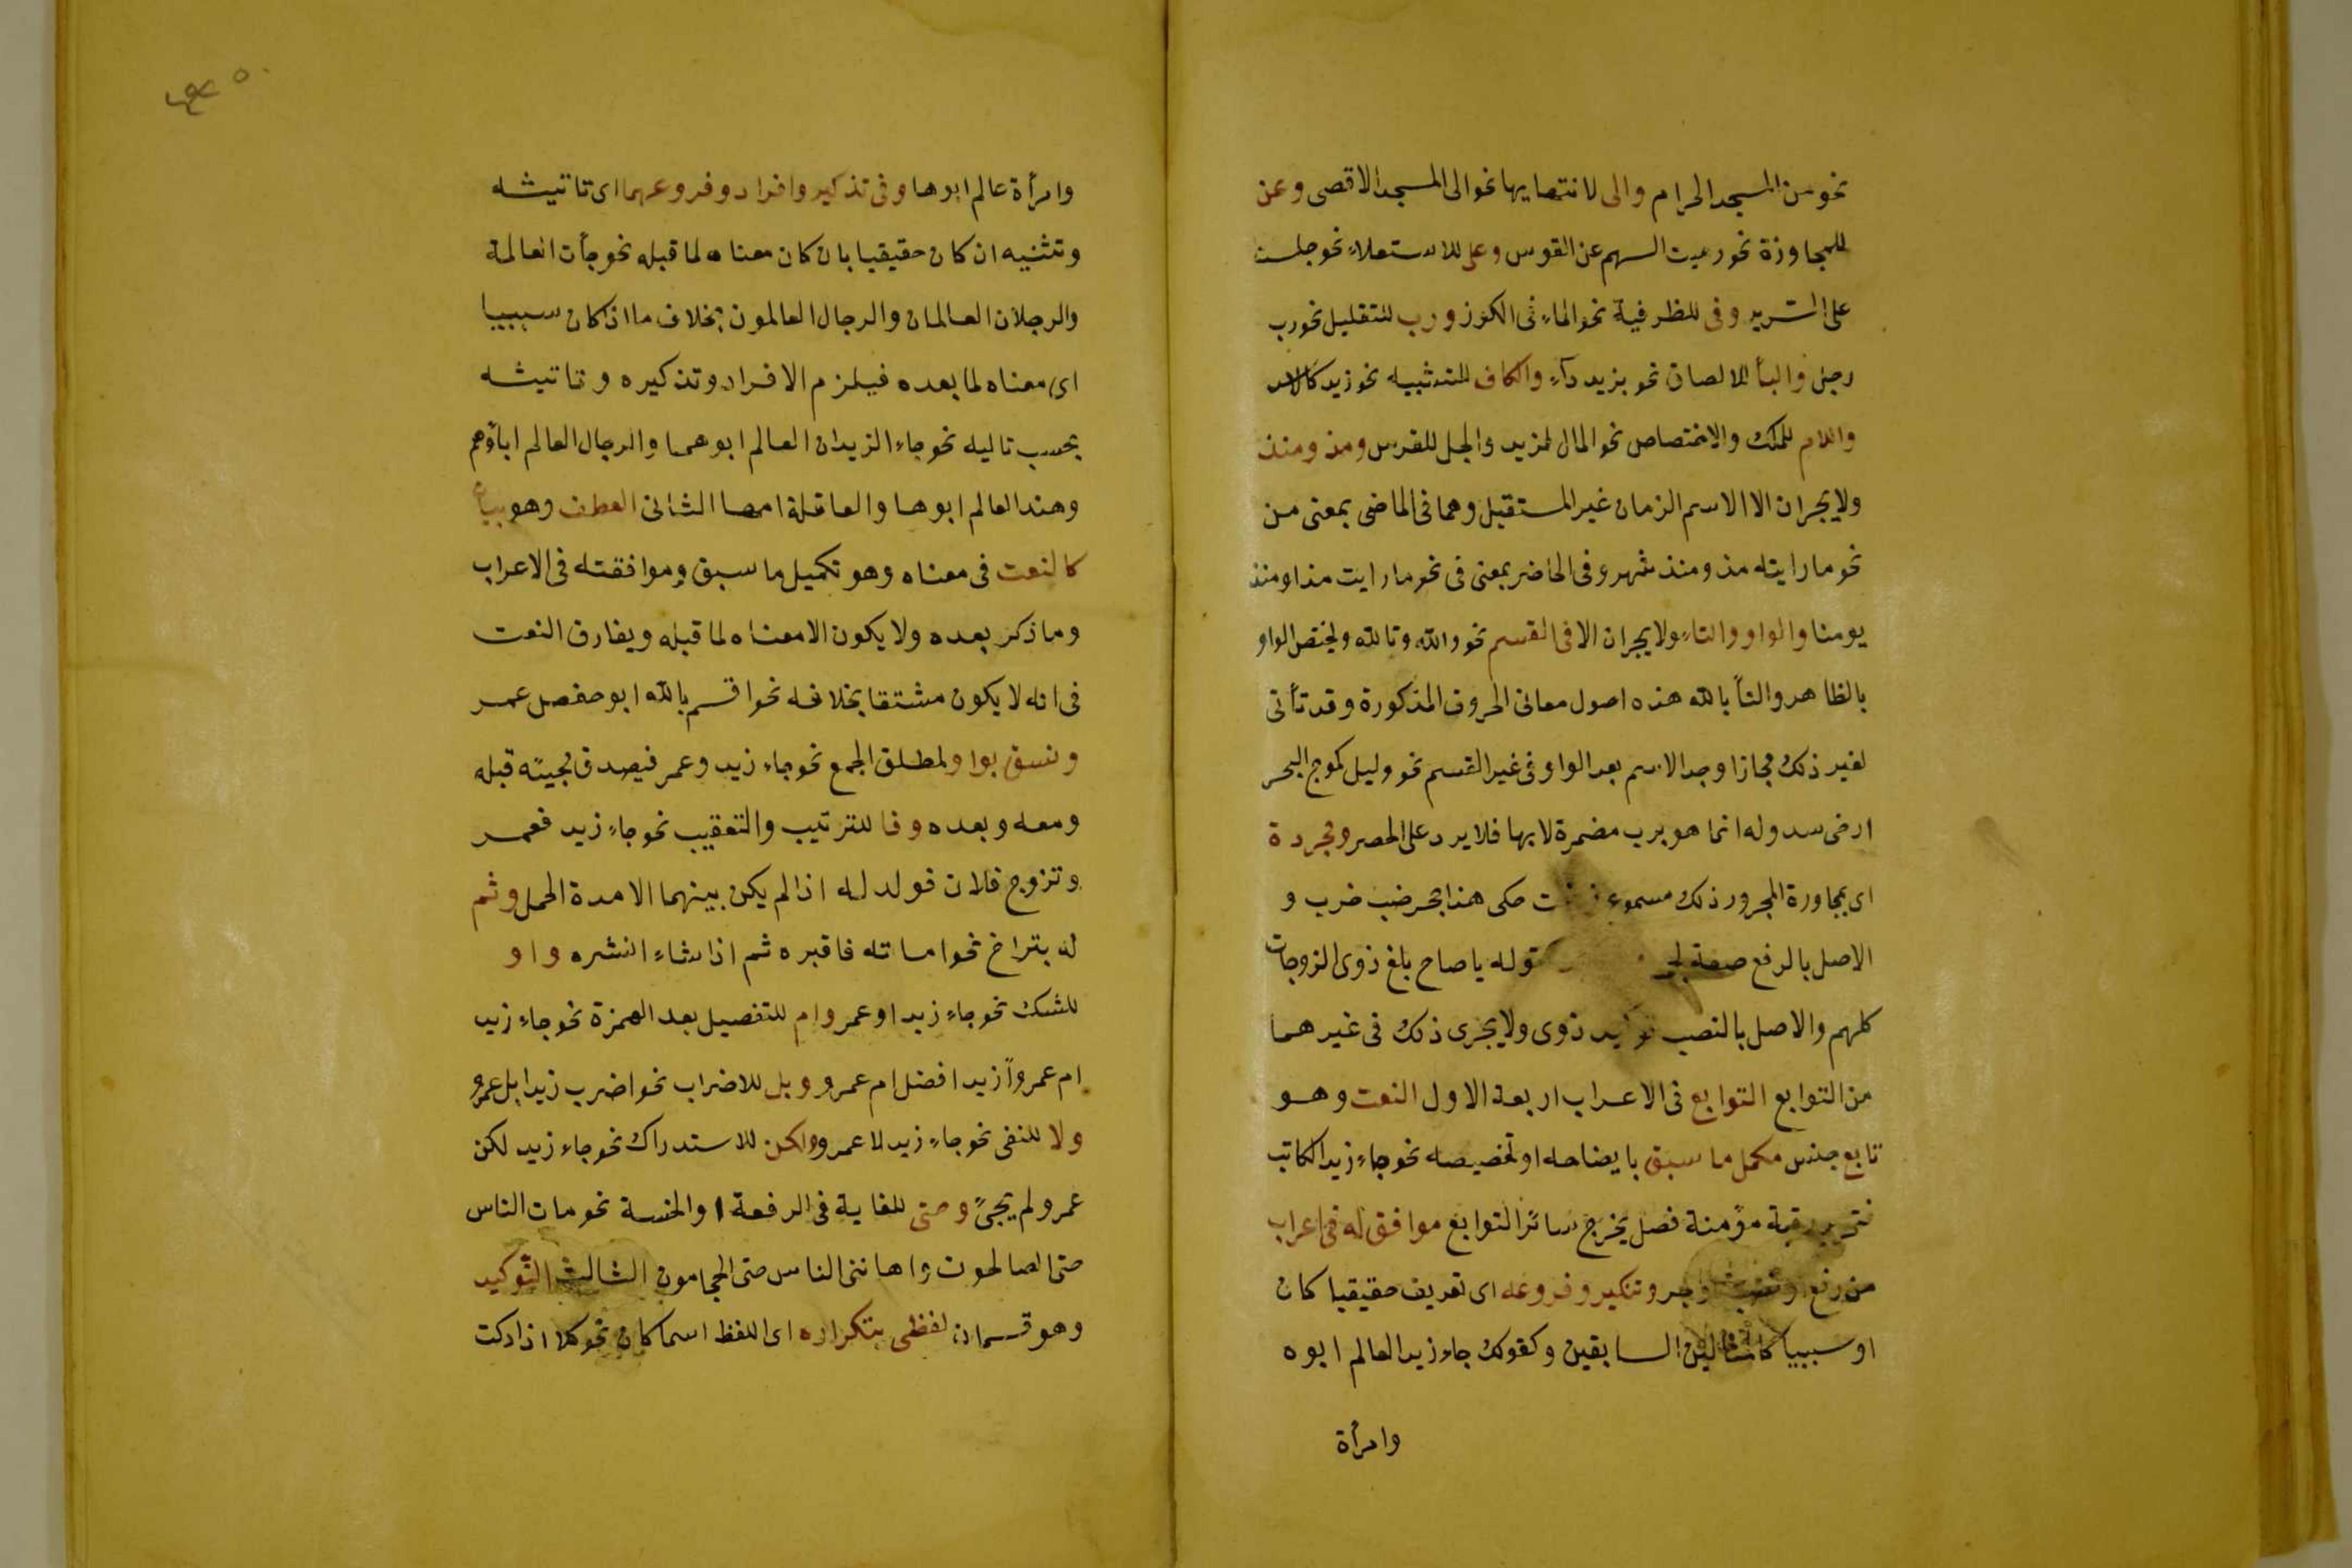 نحو من المسجد الحرام والى لانتهايها نحو الى المسجد الاقصى وعن
للمجاوزة نحو رميت السهم عن القوس وعلى للاستعلاء نحو جلست
على السرير وفى للظرفية نحو الماء فى الكوز ورب للتقليل نحو رب
رجل والبأ للالصاق نحو بزيد دآء والكاف للتشبيه نحو زيد كالاسد
واللام للملك والاختصاص نحو المال لزيد والجل للفرس ومذ ومنذ
ولا يجران الا الاسم الزمان غير المستقبل وهما فى الماضى بمعنى من
نحو ما رايته مذ ومنذ شهر وفى الحاضر بمعنى فى نحو ما رايت مذ او منذ
يومنا والواو والتاء ولا يجران الا فى القسم نحو والله وتالله ولختص الواو
بالظاهر والتأ بالله هذه اصول معانى الحروف المذكورة وقد تأتى
لغير ذلك مجازا وجد الاسم بعد الواو فى غير القسم نحو وليل كموج البحر
ارخى سدوله انما هو برب مضمرة لا بها فلا يرد على الحصر ومجردة
اى بمجاورة المجرور ذلك مسموع حكى هذا جحر ضب خرب و
الاصل بالرفع صفة لجحر قوله يا صاح بلغ ذوى الزوجات
كلهم والاصل بالنصب توكيد ذوى ولا يجرى ذلك فى غيرهما
من التوابع التوابع فى الاعراب اربعة الاول النعت وهو
تابع جنس مكمل ما سبق بايضاحه او تخصيصه نحو جاء زيد الكاتب
فتحرير رقبة مؤمنة فصل يخرج سائر التوابع موافق له فى اعراب
من رفع او نصب او جر وتنكير وفروعه اى تعريف حقيقيا كان
او سببيا كالمثالين السابقين وكقولك جاء زيد العالم ابوه
وامرأة
وامرأة عالم ابوها وفى تذكير وافراد وفروعهما اى تانيثه
وتثنيه ان كان حقيقيا بان كان معناه لما قبله نحو جأت العالمة
والرجلان العالمان والرجال العالمون بخلاف ما اذا كان سببيا
اى معناه لما بعده فيلزم الافراد وتذكيره وتانيثه
بحسب تاليه نحو جاء الزيدان العالم ابوهما والرجال العالم اباؤهم
وهند العالم ابوها والعاقلة امها الثانى العطف وهو بيان
كالنعت فى معناه وهو تكميل ما سبق وموافقته فى الاعراب
وما ذكر بعده ولا يكون الا معناه لما قبله ويفارق النعت
فى انه لا يكون مشتقا بخلافه نحو اقسم بالله ابو حفص عمر
ونسق بواو لمطلق الجمع نحو جاء زيد وعمر فيصدق لجيئه قبله
ومعه وبعده وفا للترتيب والتعقيب نحو جاء زيد فعمر
وتزوج فلان فولد له اذا لم يكن بينهما الا مدة الحمل وثم
له بتراخ نحو اماته فاقبره ثم اذا شاء انشره واو
للشك نحو جاء زيد او عمر وام للتفصيل بعد الهمزة نحو جاء زيد
ام عمرو أزيد افضل ام عمرو وبل للاضراب نحو اضرب زيدا بل عمرو
ولا للنفى نحو جاء زيد لا عمرو ولكن للاستدراك نحو جاء زيد لكن
عمرو لم يجئ وحتى للغاية فى الرفعة والخسة نحو مات الناس
حتى الصالحون واهاننى الناس حتى الحجامون الثالث التوكيد
وهو قسمان لفظى بتكراره اى اللفظ اسما كان نحو كلا اذا دكت